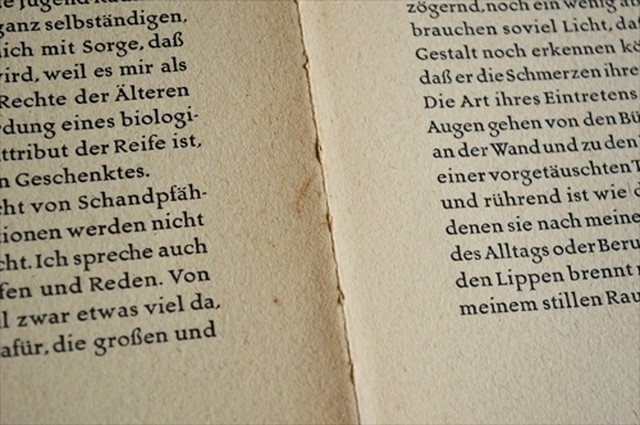 ganz selbständigen,
mich mit Sorge, daß
wird, weil es mir als
Rechte der Älteren
dung eines biologi-
ttribut der Reife ist,
n Geschenktes.
ht von Schandpfäh-
tionen werden nicht
cht. Ich spreche auch
fen und Reden. Von
l zwar etwas viel da,
afür, die großen und
zögernd, noch ein wenig a
brauchen soviel Licht, da
Gestalt noch erkennen kö
daß er die Schmerzen ihre
Die Art ihres Eintretens
Augen gehen von den Bü
an der Wand und zu den
einer vorgetäuschten T
und rührend ist wie d
denen sie nach meine
des Alltags oder Beru
den Lippen brennt
meinem stillen Rau